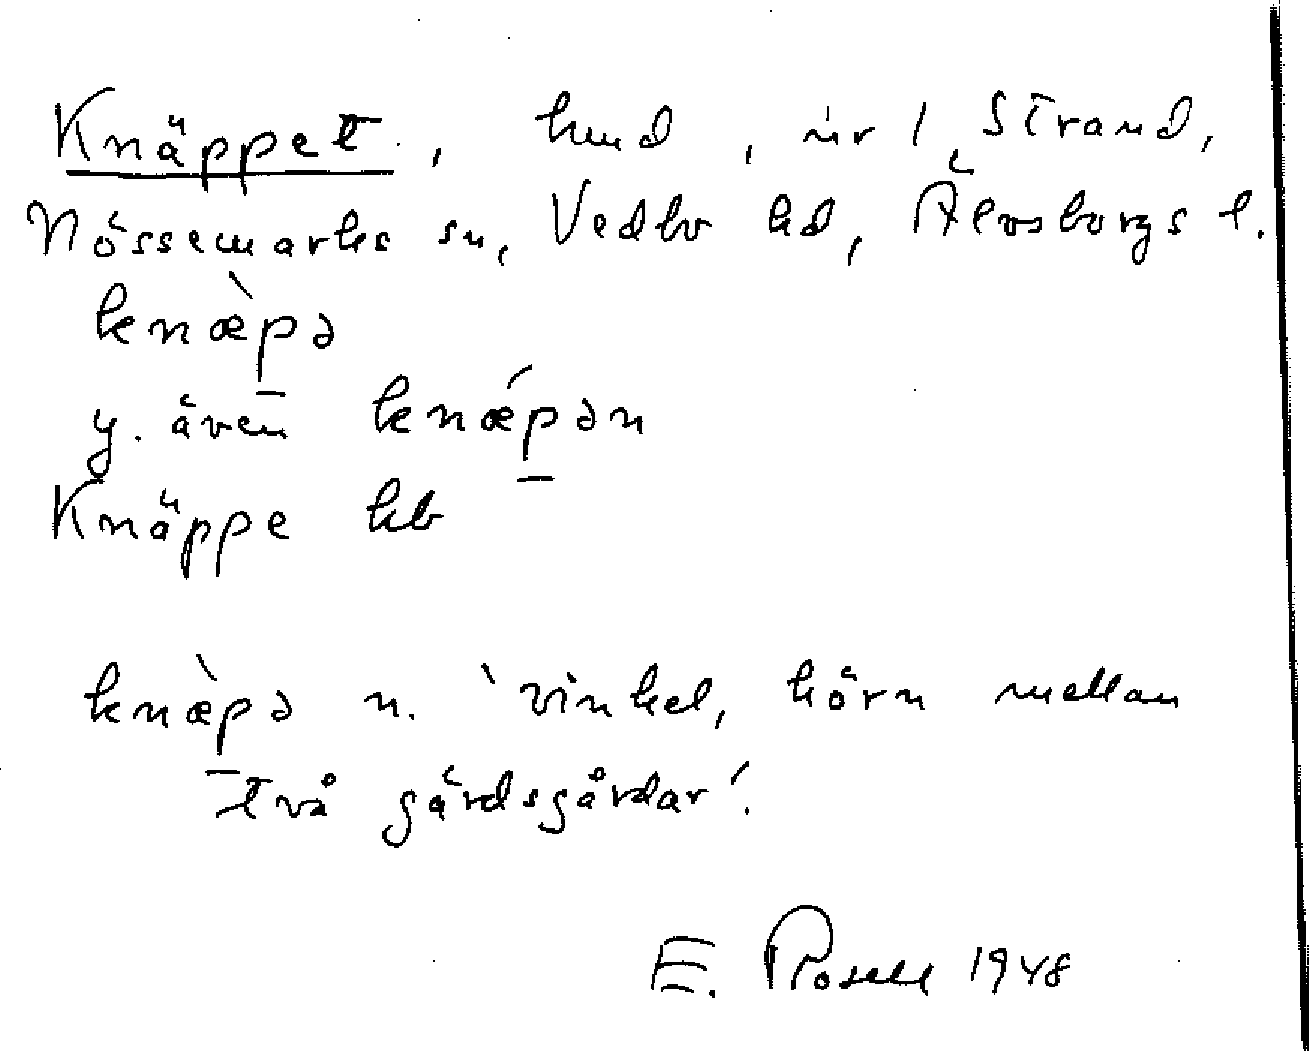 Knäppet, hmd, nr 1 Strand,
Nössemarks sn, Vedbo hd, Älvsborgs l.
knæ̀p̲ə
y. även knǽp̲ən
Knäppe kb
knæ̀p̲ə n. 'vinkel, hörn mellan
två gärdsgårdar'.
E. Rosell 1948